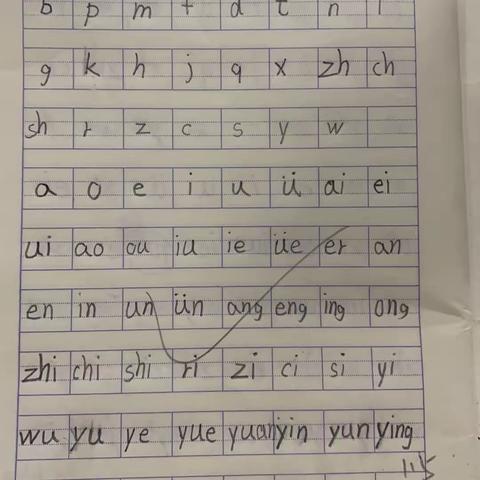 b p m f d t n l
g k h j q x zh ch
sh r z c s y w
a o e i u ü ai ei
ui ao ou iu ie üe er an
en in un ün ang eng ing ong
zhi chi shi ri zi ci si yi
wu yu ye yue yuan yin yun ying